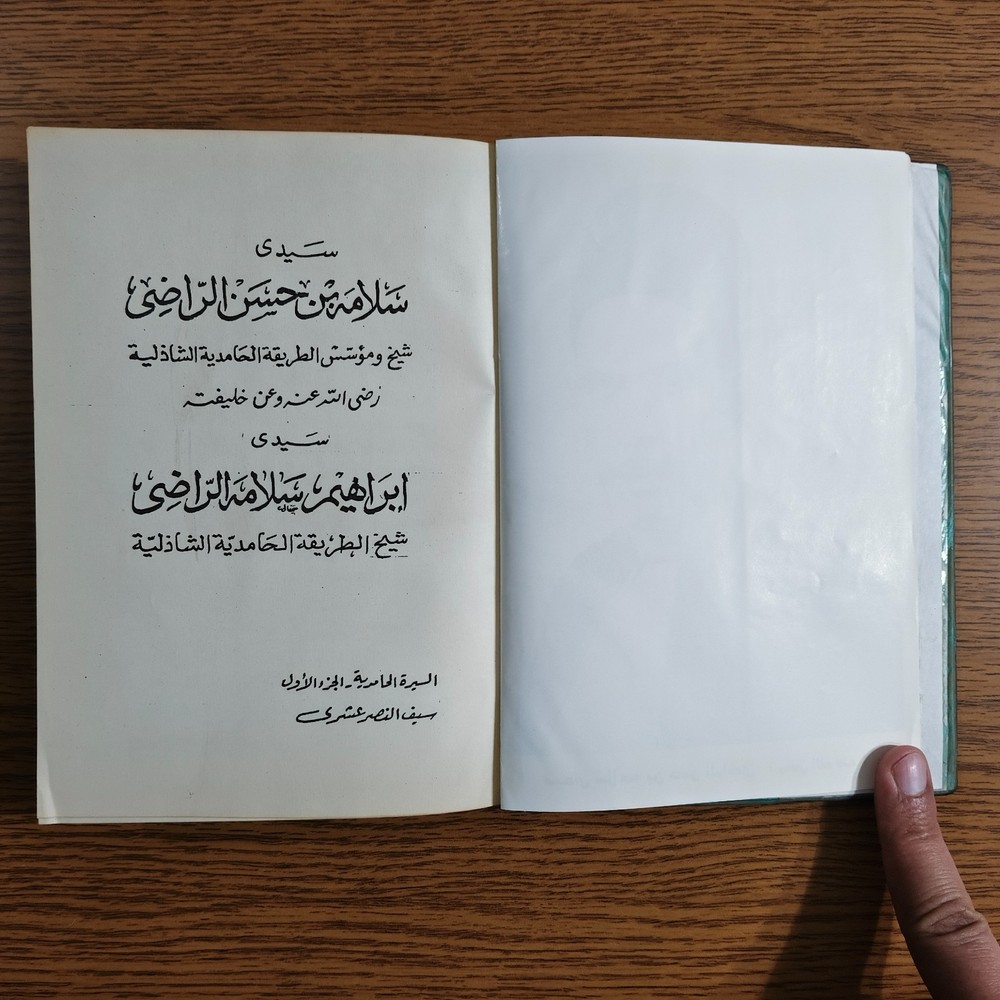 سيدى
سَلامَه بْن حسَن الرّاضِى
شيخ ومؤسّس الطريقة الحَامدية الشاذلية
رضى اللّه عنه وعن خليفته
سيدى
ابرَاهيم سَلامَه الرّاضِى
شيخ الطريقة الحَامديّة الشاذليّة
السيرة الحامدية - الجزء الأول
سيف النصر عشرى